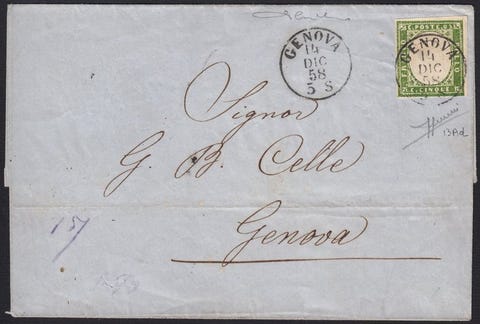 GENOVA
14
DIC
58
5 S
C. POSTE 05
GENOVA
14
DIC
58
C. CINQUE
13Ad
Signor
G. B. Celle
Genova
157